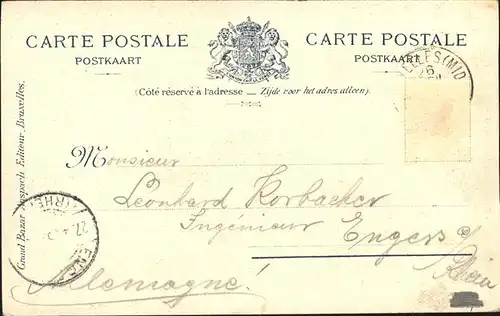 CARTE POSTALE CARTE POSTALE
POSTKAART POSTKAART
(Côté réservé à l'adresse — Zijde voor het adres alleen).
Grand Bazar Anspach Editeur, Bruxelles.
Monsieur
Leonhard Korbacher
Ingénieur
Engers s/
Rhein
Allemagne!